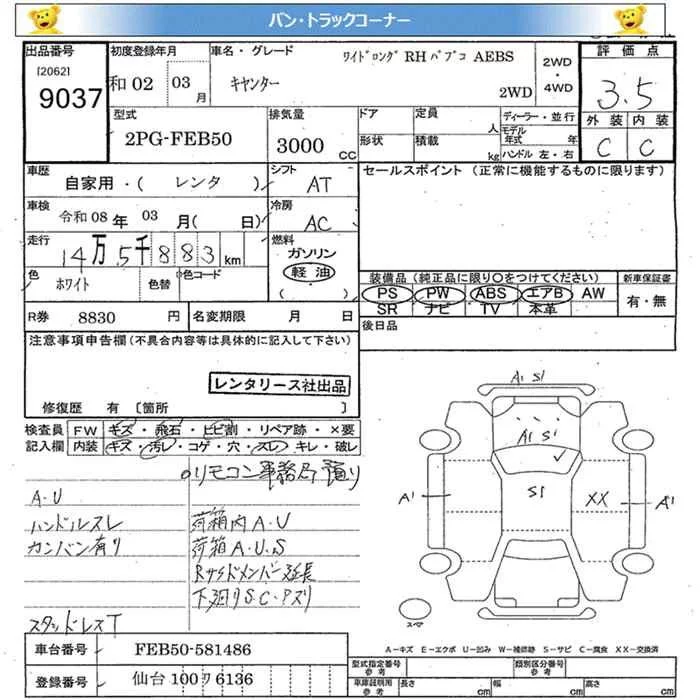 バン・トラックコーナー
出品番号
[2062]
9037
初度登録年月
和02 03月
車名・グレード
ワイドロング RHパブコ AEBS
キャンター
2WD
2WD・4WD
評価点
3.5
外装 内装
C C
型式
2PG-FEB50
排気量
3000 CC
ドア
形状
定員 人
積載 kg
ディーラー・並行
モデル年式 年
ハンドル 左・右
車歴
自家用・( レンタ )
シフト
AT
車検
令和08年 03月( 日)
冷房
AC
走行
14万5千883km
燃料
ガソリン
軽油
( )
色
ホワイト
色替
色コード
R券 8830 円
名変期限 月 日
セールスポイント (正常に機能するものに限ります)
装備品 (純正品に限り〇をつけてください)
PS PW ABS エアB AW
SR ナビ TV 本革
新車保証書
有・無
後日品
注意事項申告欄(不具合内容等は具体的に記入して下さい)
レンタリース社出品
修復歴 有 〔箇所 〕
検査員記入欄
FW キズ・飛石・ヒビ割・リペア跡・×要
内装 キズ・汚レ・コゲ・穴・スレ・キレ・破レ
リモコン事務局預り
A・U
ハンドルスレ
カンバン有り
スタッドレスT
荷箱内A・U
荷箱A・U・S
Rサイドメンバー延長
下廻りS・C・Pズリ
A1 S1
A1 S1
S1
A1
XX
A1
スペア
A-キズ E-エクボ U-凹み W-補修跡 S-サビ C-腐食 XX-交換済
車台番号 FEB50-581486
登録番号 仙台 100 ワ 6136
型式指定番号 参考
類別区分番号 参考
車庫証明用 参考
長さ cm
幅 cm
高さ cm